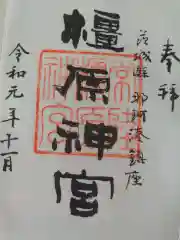 奉拝
茨城縣那珂湊鎮座
橿原神宮
令和元年十一月